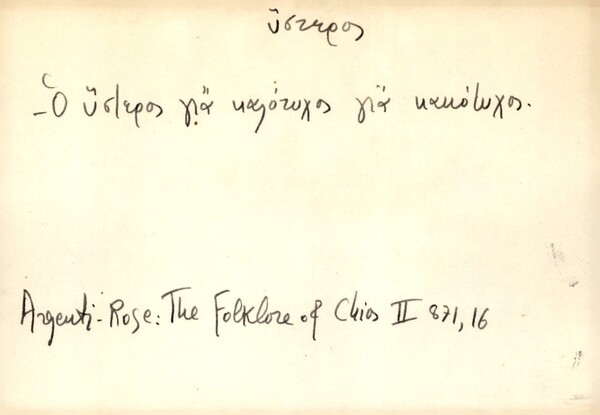 ὕστερος
- Ὁ ὕστερος γιὰ καλότυχος γιὰ κακότυχος.
Argenti-Rose: The Folklore of Chios II 871,16